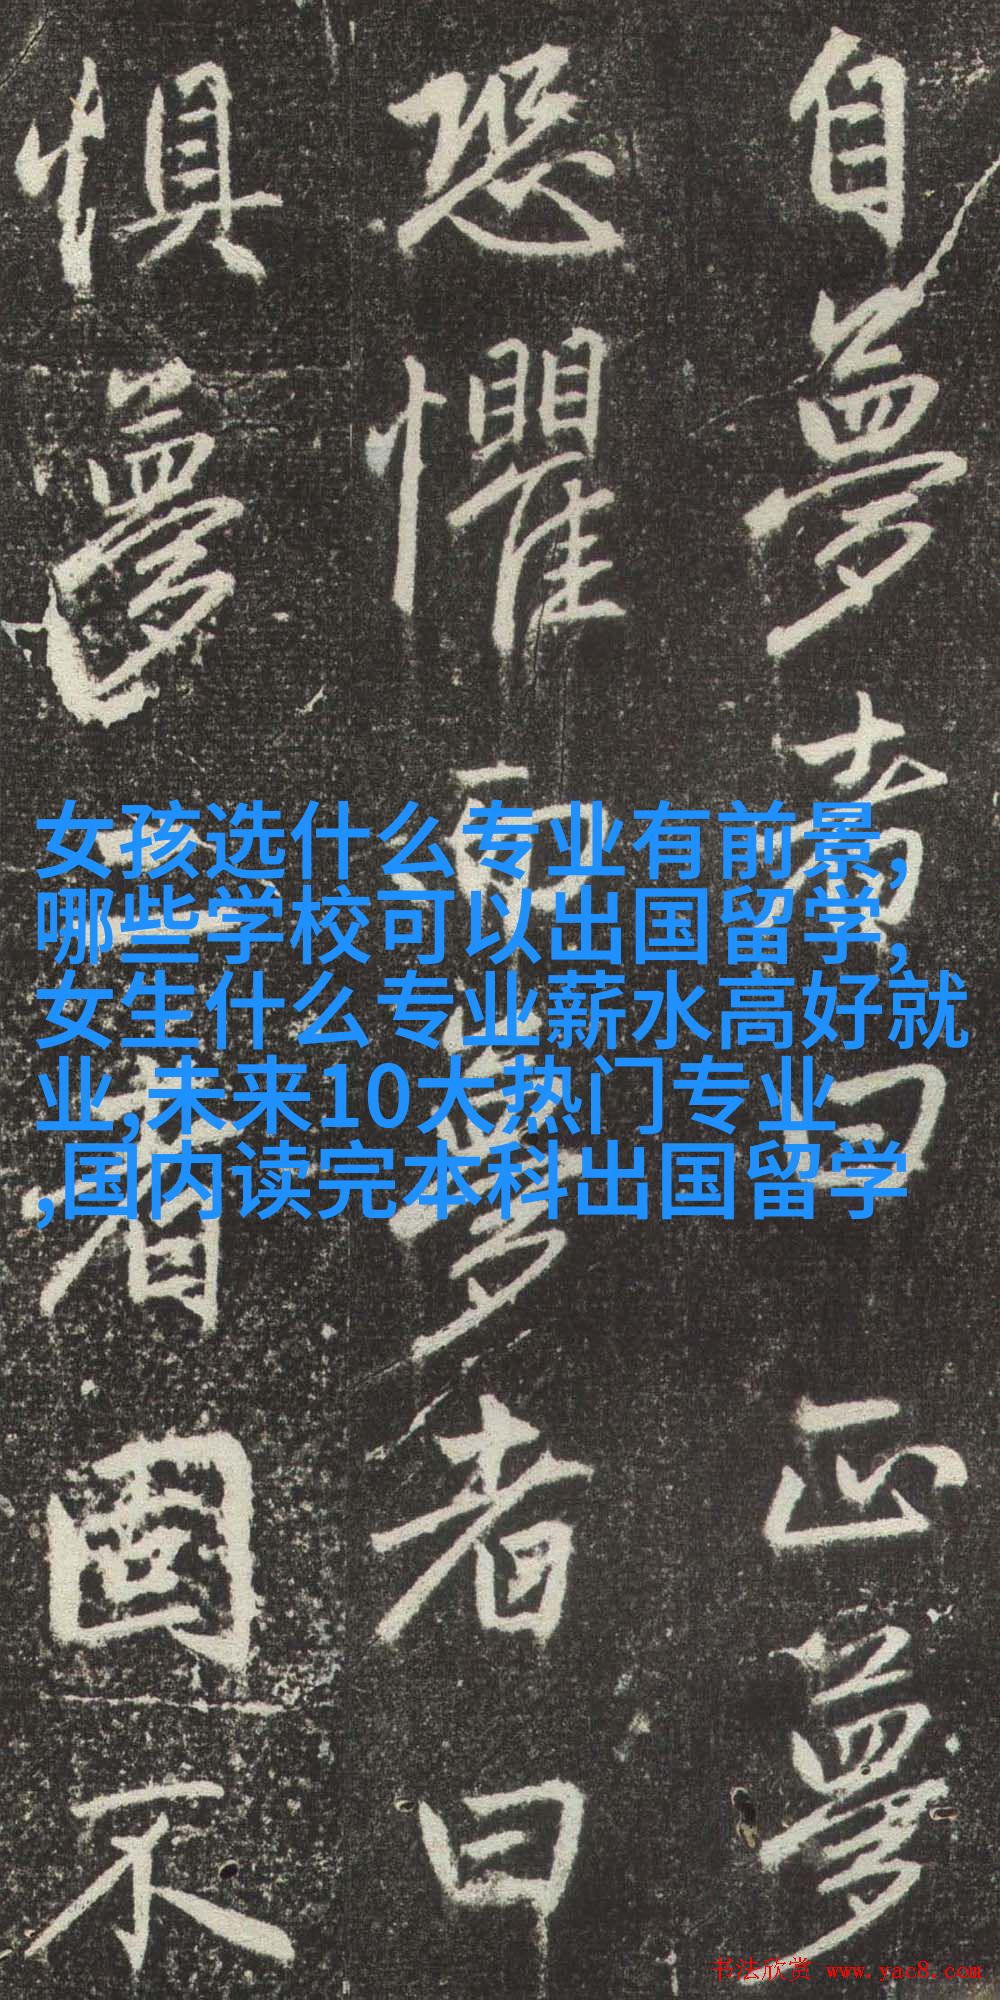 自夢者曰正夢
恐懼而夢者曰
惧夢者固不
女孩选什么专业有前景,
哪些学校可以出国留学,
女生什么专业薪水高好就
业,未来10大热门专业
,国内读完本科出国留学
书法欣赏 www.yac8.com